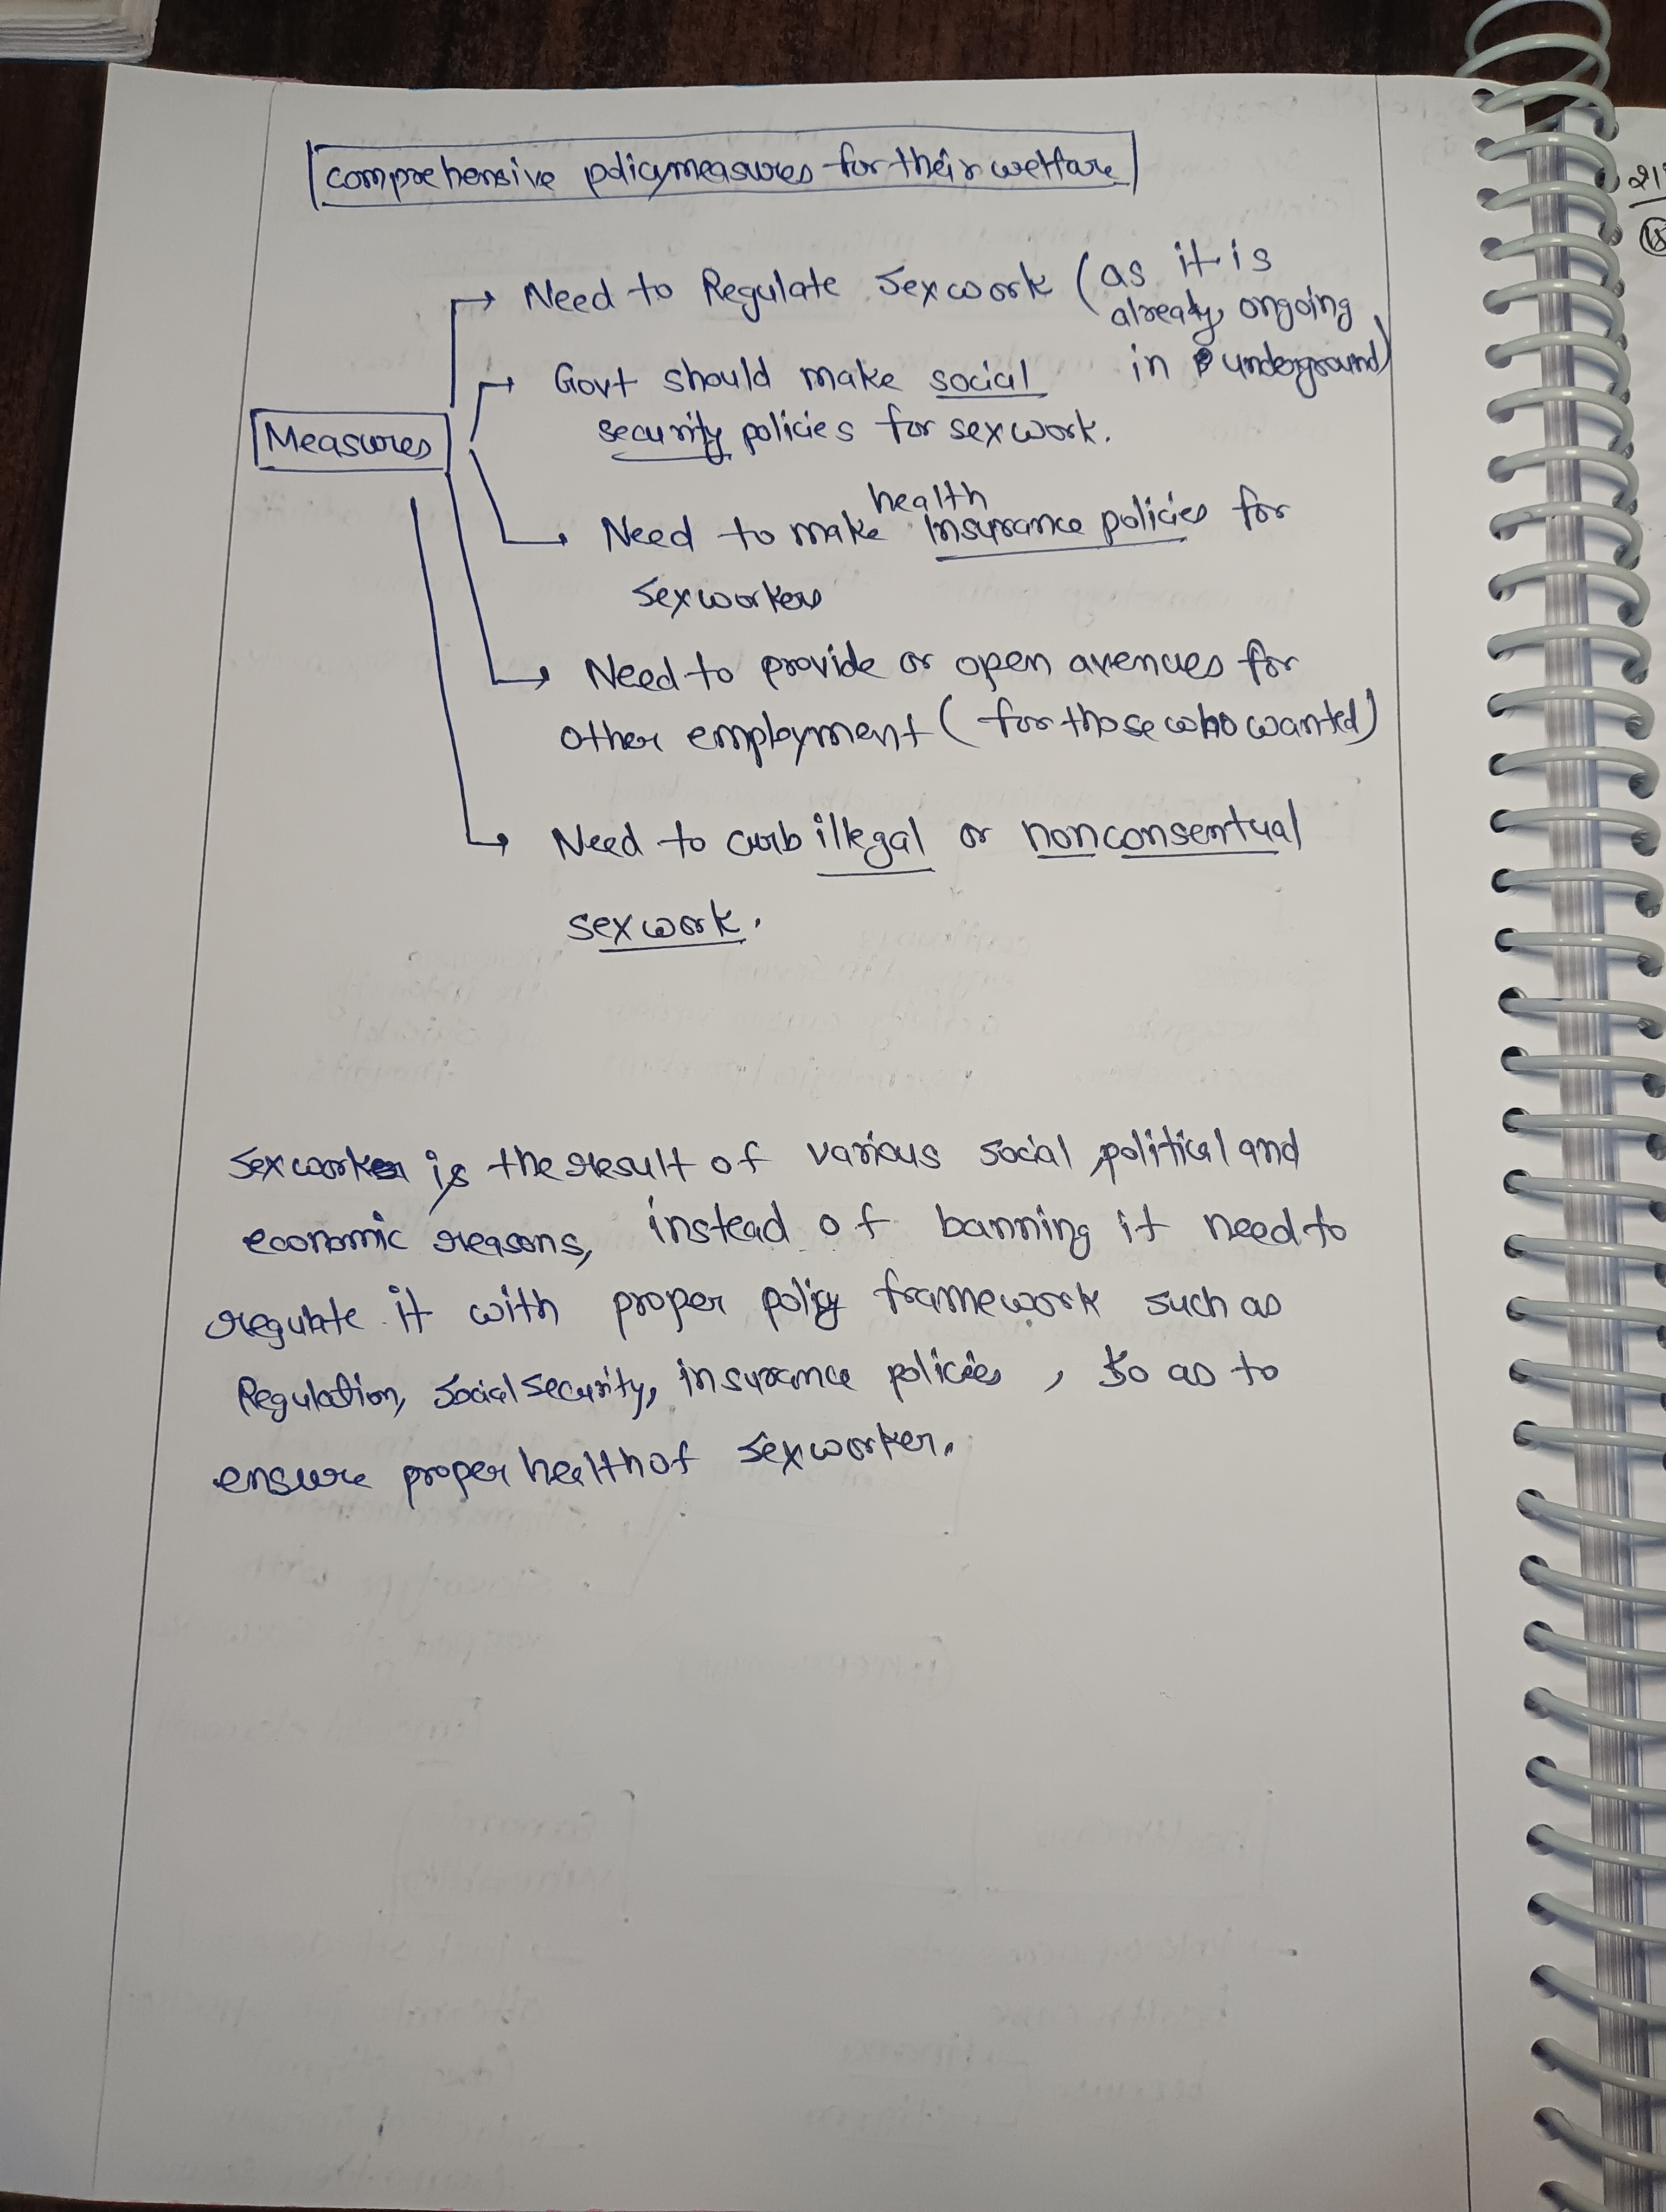 comprehensive policymeasures for their welfare
Need to Regulate Sexwork (as it is
already ongoing
in underground)
Govt should make social
security policies for sexwork.
Measures
health
Need to make insurance policies for
Sexworkers
Need to provide or open avenues for
other employment (for those who wanted)
Need to curb illegal or nonconsentual
sexwork.
Sexworker is the result of various social political and
economic reasons, instead of banning it need to
regulate it with proper policy framework such as
Regulation, social security, insurance policies, so as to
ensure proper health of sexworker.